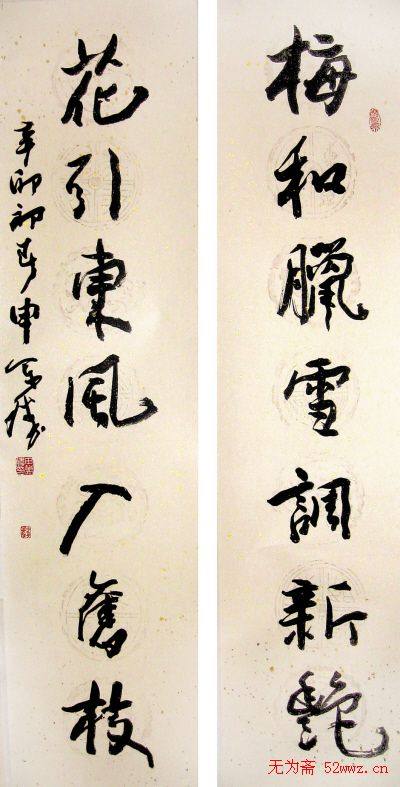 梅和臘雪調新艷
花引東風入舊枝
辛卯初春申
无为斋 52wwz.cn